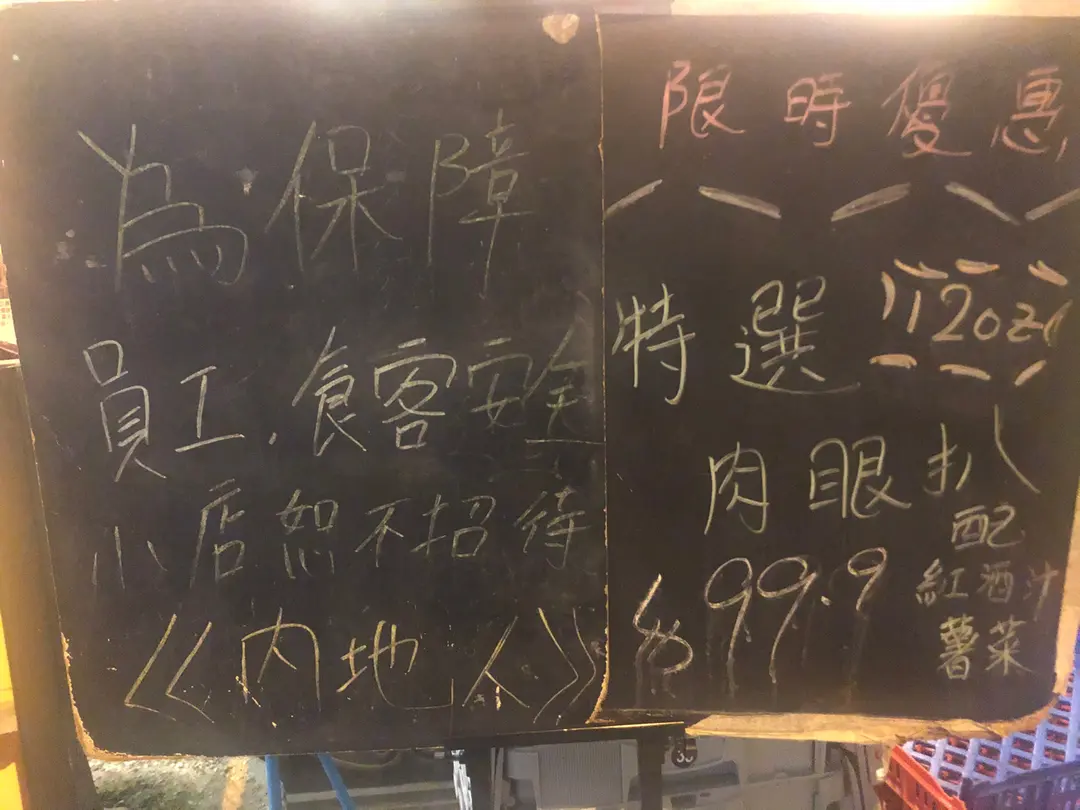 為保障
員工.食客安全
小店恕不招待
《內地人》
限時優惠
特選
12oz
肉眼扒
配
紅酒汁
薯菜
$99.9
35